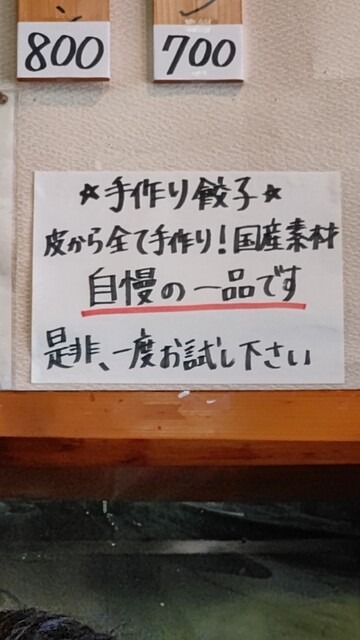 800 700
☆手作り餃子☆
皮から全て手作り！国産素材
自慢の一品です
是非、一度お試し下さい